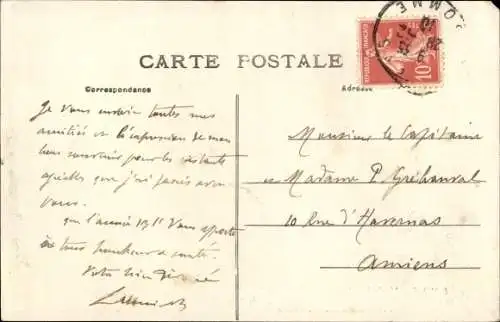 CARTE POSTALE
Correspondance
Adresse
SOMME
REPUBLIQUE FRANCAISE
10
Je vous envoie toutes mes
amitiés et l'expression de mon
bon souvenir pour les instants
agréables que j'ai passés avec
vous.
que l'année 1911 vous apporte
à tous bonheur & santé.
Votre bien
Monsieur le Capitaine
et Madame P. Gréhauval
10 Rue d'Havernas
Amiens